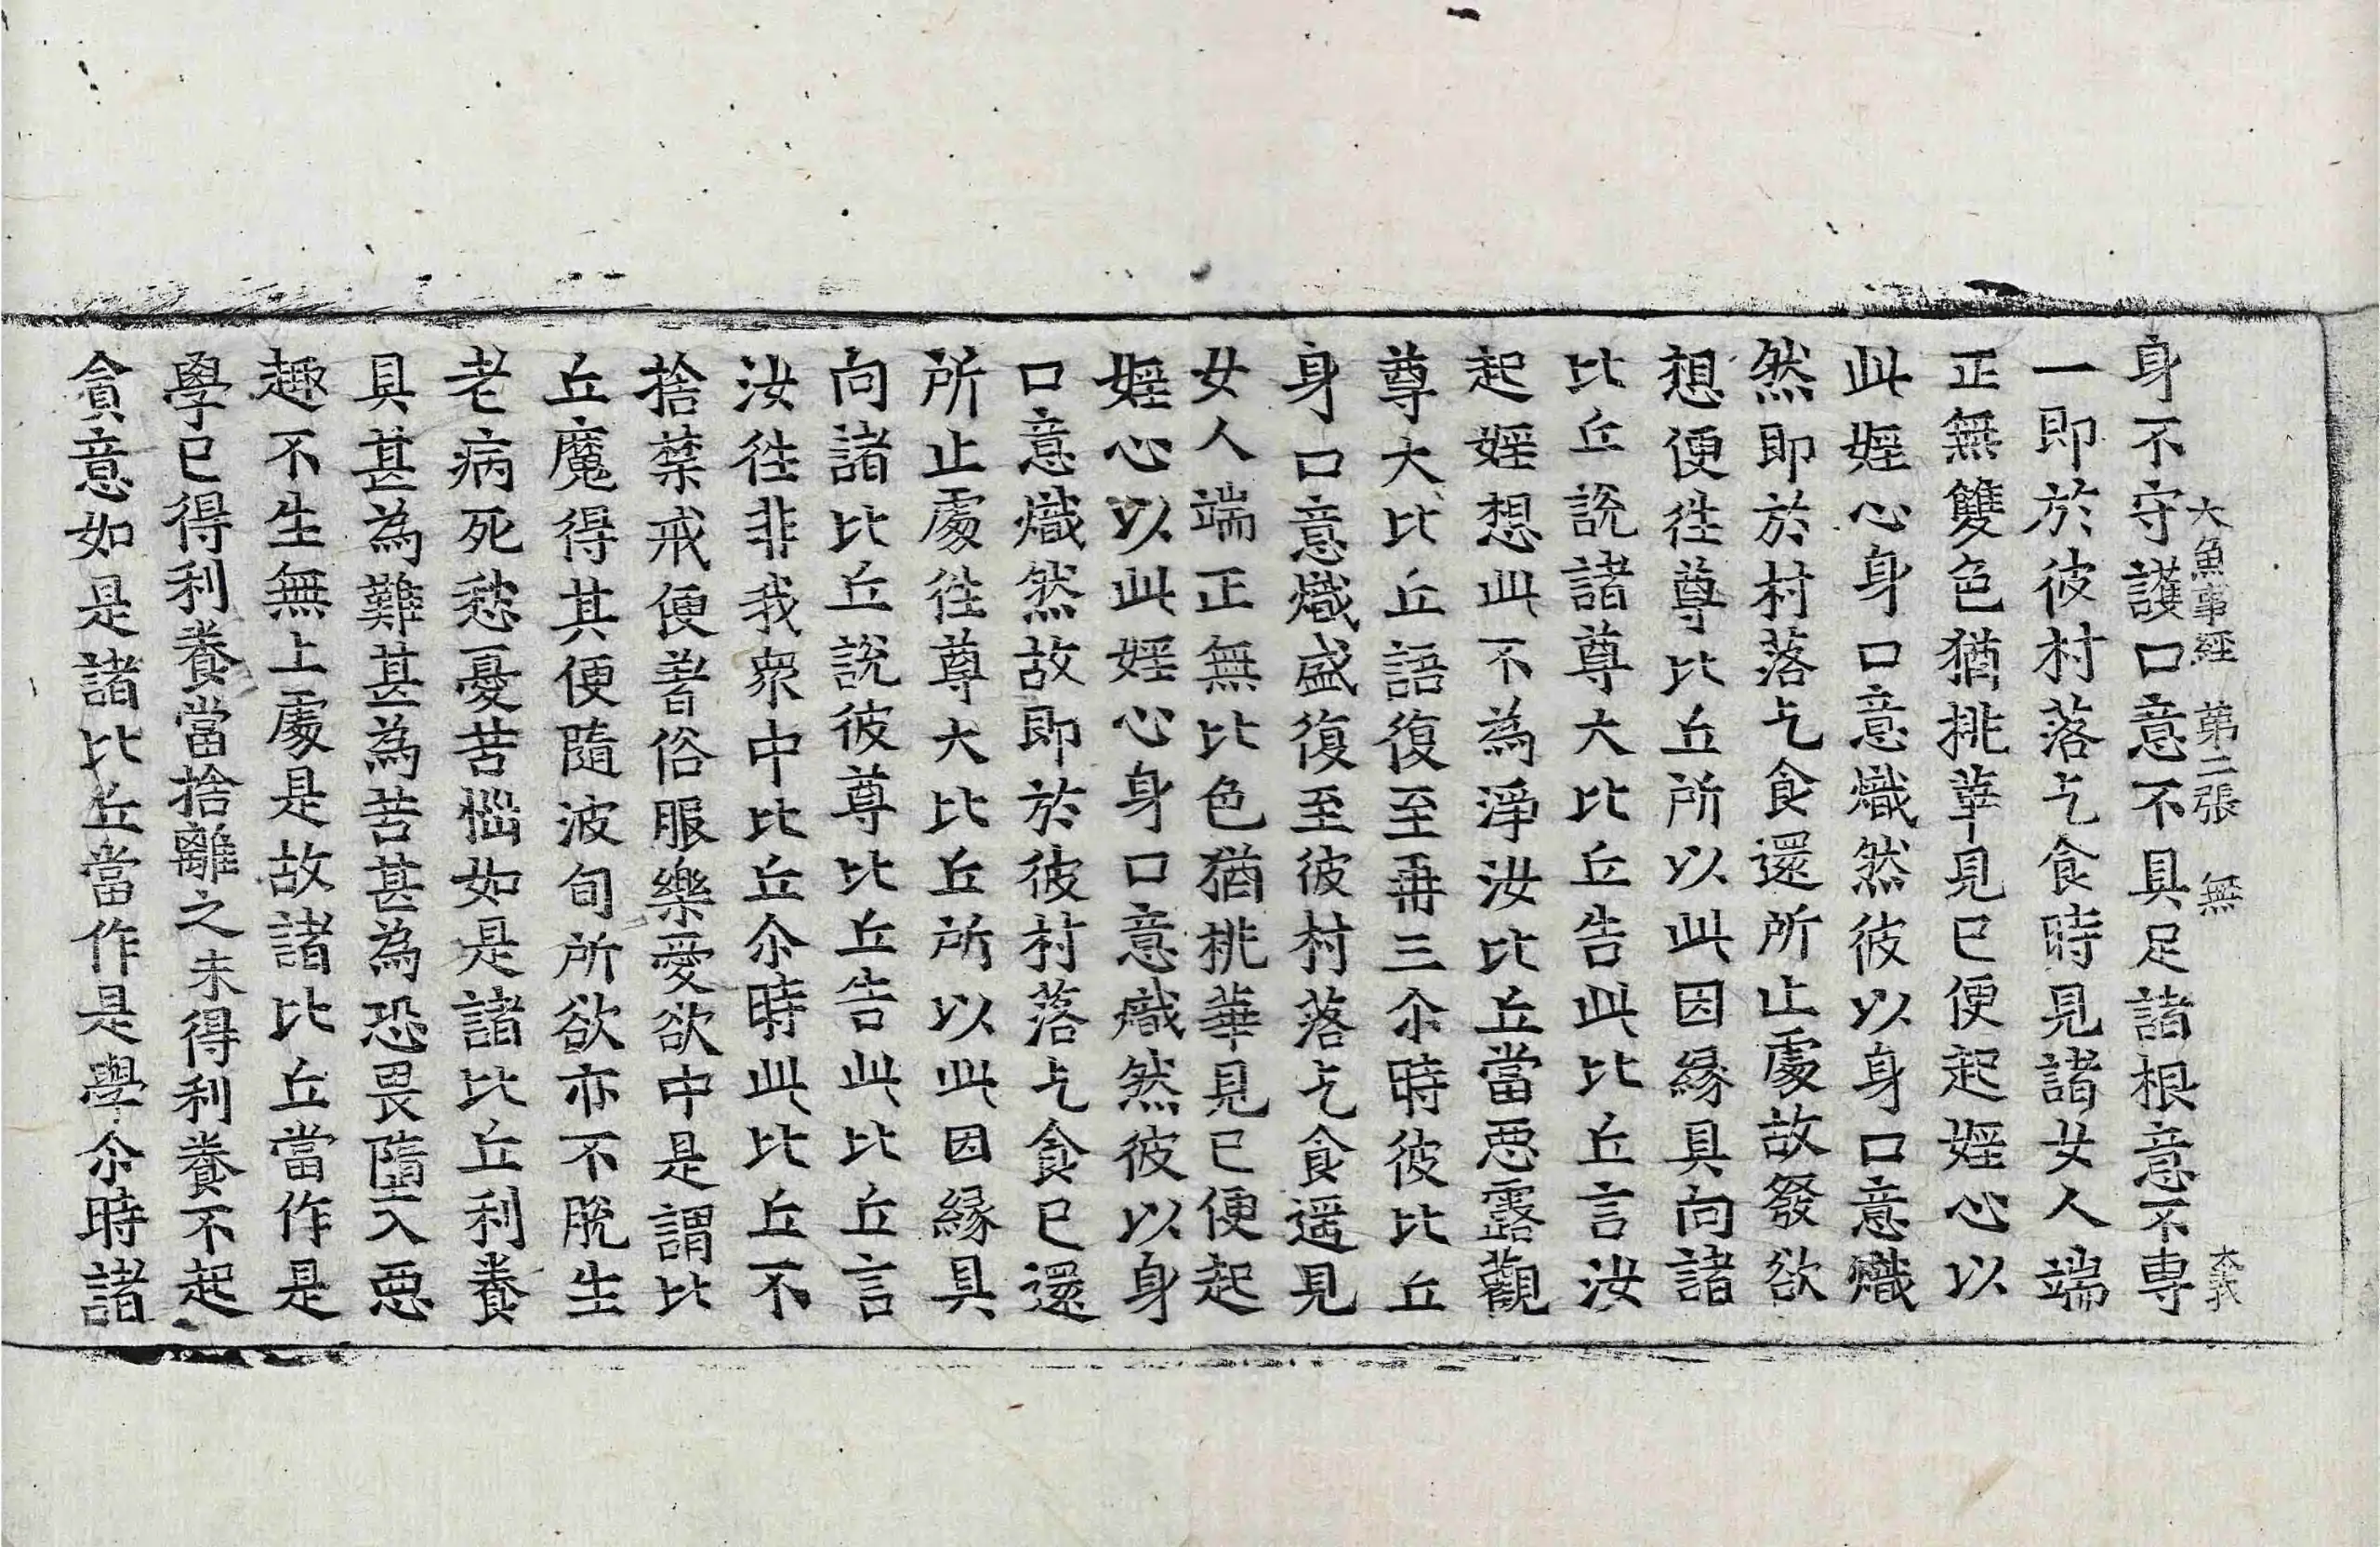 大魚事經　第二張　無　大義
身不守護口意不具足諸根意不専
一即於彼村落乞食時見諸女人端
正無雙色猶桃華見已便起婬心以
此婬心身口意熾然彼以身口意熾
然即於村落乞食還所止處故發欲
想便往尊比丘所以此因縁具向諸
比丘說諸尊大比丘告此比丘言汝
起婬想此不為淨汝比丘當惡露觀
尊大比丘語復至再三尒時彼比丘
身口意熾盛復至彼村落乞食遥見
女人端正無比色猶桃華見已便起
婬心以此婬心身口意熾然彼以身
口意熾然故即於彼村落乞食已還
所止處往尊大比丘所以此因縁具
向諸比丘說彼尊比丘告此比丘言
汝往非我衆中比丘尒時此比丘不
捨禁戒便著俗服樂愛欲中是謂比
丘魔得其便隨波旬所欲亦不脫生
老病死愁憂苦惱如是諸比丘利養
具甚為難甚為苦甚為恐畏墮入惡
趣不生無上處是故諸比丘當作是
學已得利養當捨離之未得利養不起
貪意如是諸比丘當作是學尒時諸